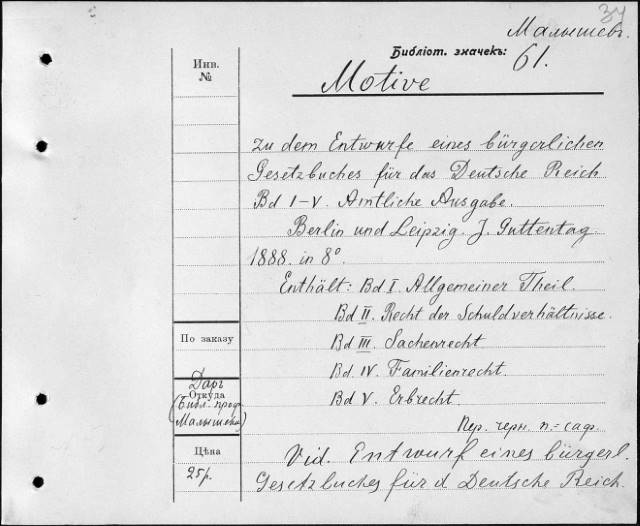 37
Малышев.
Библіот. значекъ:
61.
Инв.
№
Motive
zu dem Entwurfe eines bürgerlichen
Gesetzbuches für das Deutsche Reich
Bd I-V. Amtliche Ausgabe.
Berlin und Leipzig. J. Guttentag
1888. in 8°.
Enthält: Bd I. Allgemeiner Theil.
Bd II. Recht der Schuldverhältnisse.
По заказу
Bd III. Sachenrecht
Bd. IV. Familienrecht.
Даръ
Откуда
(Библ. проф.
Малышева)
Bd V. Erbrecht.
Пер. черн. п.=саф.
Цѣна
25р.
Vid. Entwurf eines bürgerl.
Gesetzbuches für d. Deutsche Reich.